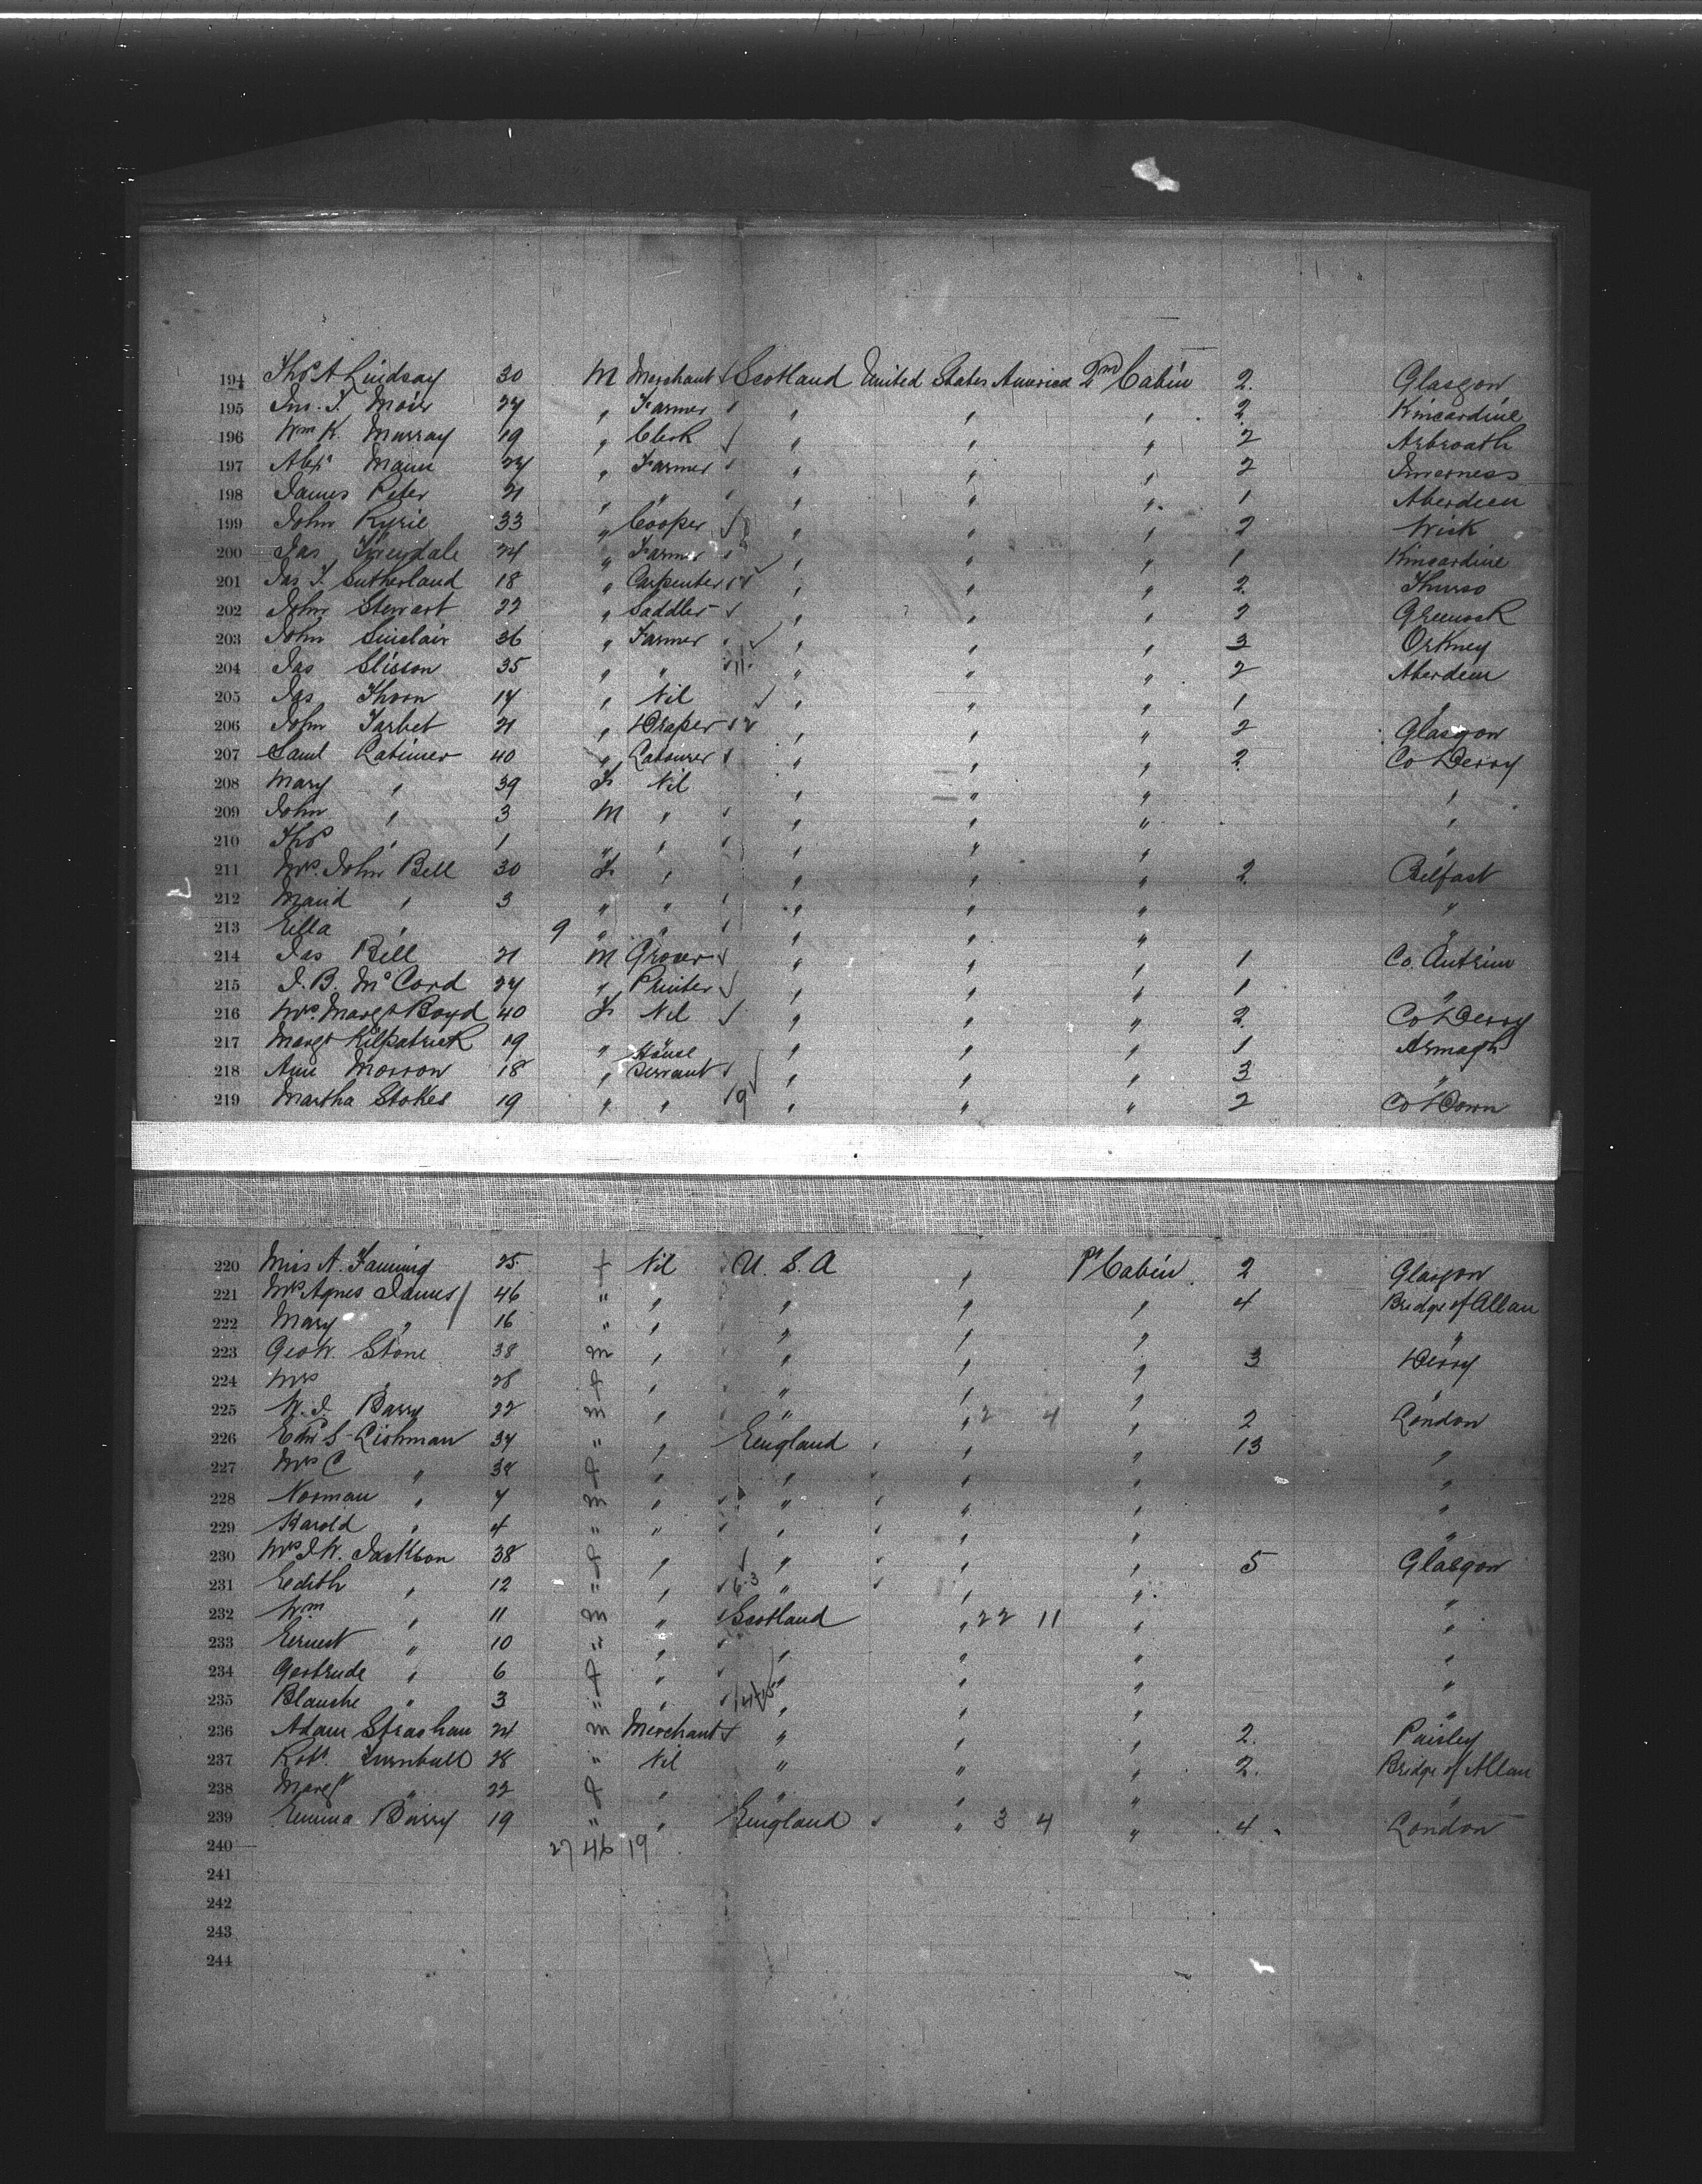 194 Thos A Lindsay 30 M Merchant Scotland United States America 2nd Cabin 2. Glasgow
195 Jno. T. Moir 27 " Farmer " " " 2. Kincardine
196 Wm K. Murray 19 " Clerk " " " 2 Arbroath
197 Alexr Mann 24 " Farmer " " " 2 Inverness
198 James Peter 21 " " " " " 1 Aberdeen
199 John Kyrie 33 " Cooper " " " 2 Wick
200 Jas 24 " Farmer " " " 1 Kincardine
201 Jas T. Sutherland 18 " Carpenter " " " 2. Thurso
202 John Stewart 22 " Saddler " " " 2 Greenock
203 John Sinclair 36 " Farmer " " " 3 Orkney
204 Jas Slisson 35 " " " " " 2 Aberdeen
205 Jas Thorn 17 " Nil " " " 1 "
206 John Tarbet 21 " Draper " " " 2 Glasgow
207 Saml Latimer 40 " Labourer " " " 2. Co Derry
208 Mary " 39 F Nil " " " "
209 John " 3 M " " " " "
210 Thos " 1 " " " " " "
211 Mrs. John Bell 30 F " " " " 2. Belfast
212 Maud " 3 " " " " " "
213 Ella " 9 " " " " " "
214 Jas Bell 21 M Grocer " " " 1 Co. Antrim
215 J. B. McCord 27 " Printer " " " 1 "
216 Mrs. Margt Boyd 40 F Nil " " " 2. Co Derry
217 Margt Kilpatrick 19 " House " " " 1 Armagh
218 Ann Morron 18 " Servant " " " 3 "
219 Martha Stokes 19 " " 19 " " " 2 Co Down
220 Miss A. Fanning 25 f Nil U. S. A " 1st Cabin 2 Glasgow
221 Mrs Agnes James 46 " " " " " 4 Bridge of Allan
222 Mary " 16 " " " " " "
223 Geo W. Stone 38 m " " " " 3 Derry
224 Mrs " 28 f " " " " "
225 W. J. Barry 22 m " " " 2 4 " 2 London
226 S. Lishman 37 " " England " " 13 "
227 Mrs C " 38 f " " " " "
228 Norman " 7 m " " " " "
229 Harold " 4 " " " " " "
230 Mrs J. W. Jackson 38 f " " " " 5 Glasgow
231 Edith " 12 " " 6.3 " " " "
232 Wm " 11 m " Scotland " 22 11 " "
233 Ernest " 10 " " " " " "
234 Gertrude " 6 f " " " " "
235 Blanche " 3 " " " " " "
236 Adam Strachan 24 m Merchant " " " 2. Paisley
237 Robt. Turnbull 28 " Nil " " " 2. Bridge of Allan
238 Margt " 22 f " " " " "
239 Emma Barry 19 " " England " 3 4 " 4 London
240 27 46 19
241
242
243
244